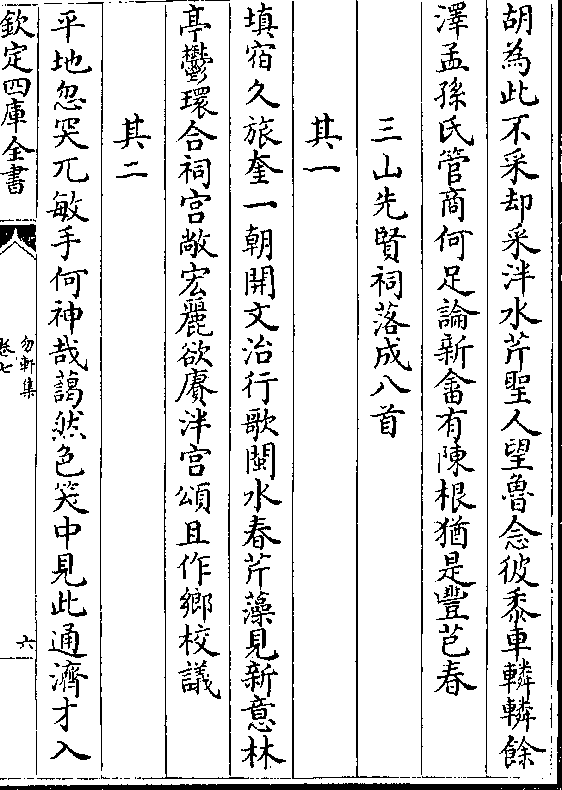 胡為此不采却采泮水芹聖人望魯念彼黍車轔轔餘
澤孟孫氏管商何足論新畬有陳根猶是豐芑春
三山先賢祠落成八首
其一
填宿久旅奎一朝開文治行歌閩水春芹藻見新意林
亭鬱環合祠宫敞宏麗欲賡泮宫頌且作鄉校議
其二
平地忽突兀敏手何神哉藹然色笑中見此通濟才入
欽定四庫全書
勿軒集
卷七
六